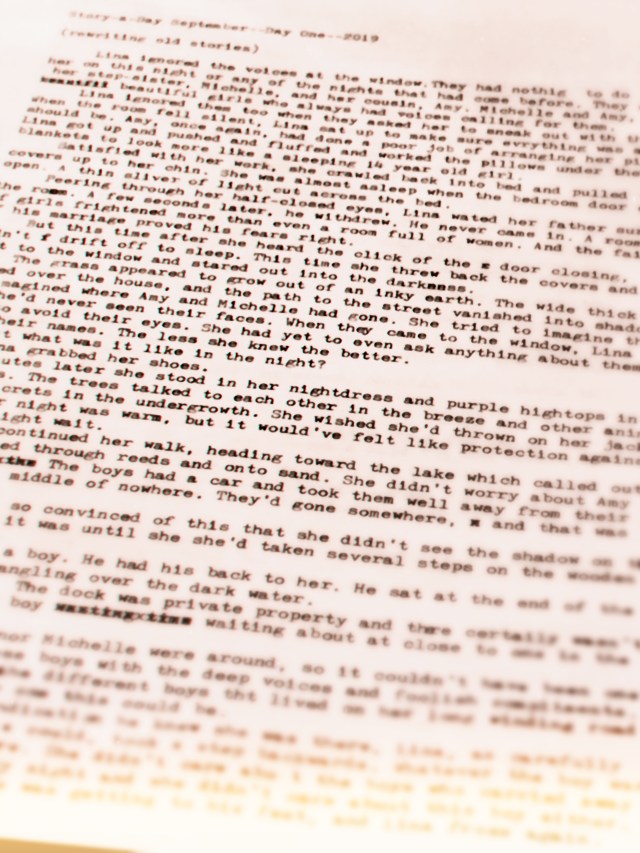 Story-a-Day September--Day One--2019
(rewriting old stories)
Lina ignored the voices at the window.They had nothig to do
her on this night or any of the nights that had come before. They
her step-sister, Michelle, and her cousin, Amy. Michelle and Amy.
beautiful girls who always had voices calling for them
Lina ignored them too when they asked her to sneak out with
when the room fell silent, Lina sat up to make sure evrything was
should be. Amy, once again, had done a poor job of arranging her
Lina got up and pushed and fluffed and worked the pillows under the
blankets to look more like a sleeping 14 year old girl.
Satisfied with her work, she crawled back into bed and pulled
covers up to her chin. She was almost asleep when the bedroom door
open. A thin sliver of light cut across the bed.
Peering through her half-closed eyes, Lina wated her father
the room. A few seconds later, he withdrew. He never came in. A room
f girls frightened more than even a room full of women. And the
his marriage proved his fears right.
But this time after she heard the click of the door closing,
n't f drift off to sleep. This time she threw back the covers and
t to the window and stared out into the darkness.
The grass appeared to grow out of an inky earth. The wide thick
ed over the house, and the path to the street vanished into
magined where Amy and Michelle had gone. She tried to imagine
he'd never seen their faces. When they came to the window, Lina
o avoid their eyes. She had yet to even ask anything about them
heir names. The less she knew the better.
t what was it like in the night?
na grabbed her shoes.
utes later she stood in her nightdress and purple hightops in
s. The trees talked to each other in the breeze and other
crets in the undergrowth. She wished she'd thrown on her
r night was warm, but it would've felt like protection
ight wait.
continued her walk, heading toward the lake which called out
ed through reeds and onto sand. She didn't worry about Amy
The boys had a car and took them well away from their
middle of nowhere. They'd gone somewhere, x and that was
so convinced of this that she didn't see the shadow on
it was until she she'd taken several steps on the wooden
a boy. He had his back to her. He sat at the end of the
angling over the dark water.
The dock was private property and there certaily wasn't
boy waiting about at close to one in the
nor Michelle were around, so it couldn't have been
boys with the deep voices and foolish compliments,
the different boys tht lived on her long winding road
one this could be.
he knew she was there, Lina, as carefully
could, took a step backwards. Whatever the boy
She didn't care
night and she didn't care about this boy either.
was getting to his feet, and Lina froze again.